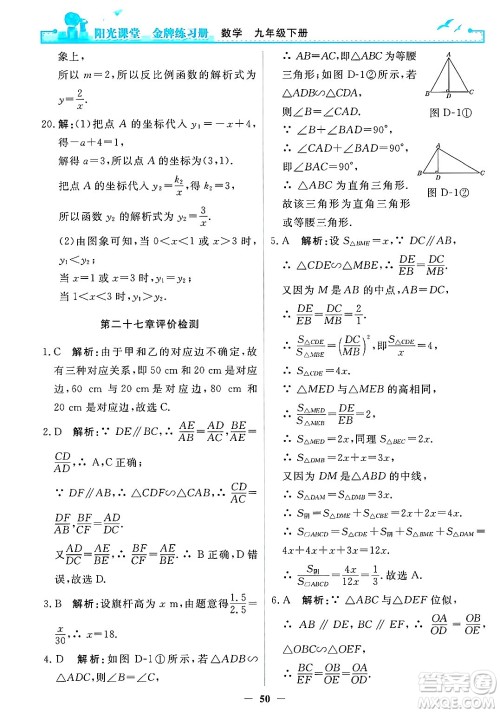 阳光课堂 金牌练习册 数学 九年级下册
象上,
所以 m=2, 所以反比例函数的解析式为
y=2/x.
20. 解:(1)把点 A 的坐标代入 y₁=-x+4,
得-a+4=1,
解得 a=3, 所以点 A 的坐标为(3,1).
把点 A 的坐标代入 y₂=k₂/x, 得 k₂=3,
所以反比例函数的解析式为 y₂=3/x.
(2)由图象可知, 当 0<x<1 或 x>3 时,
y₁<y₂;
当 x=1 或 x=3 时, y₁=y₂;
当 1<x<3 时, y₁>y₂.
第二十七章评价检测
1. C 解析:由于甲和乙的对应边不确定, 故
有三种对应关系, 它们分别是 50 cm 为对
应边、60 cm 与对应边、80 cm 与 20 cm
为对应边, 故选 C.
2. D 解析:∵ DE∥BC, ∴ AE/AB=AD/AC.
∴ A, C 正确;
∵ △EDF∽△CBF, ∴ ED/BC=EF/FC=
DF/BF.
又 AD/DC=AE/BE, ∴ AE/BE≠BF/FC, ∴ B 正确, D 错
误, 故选 D.
3. B 解析:设旗杆高为 x m, 由题意得 1.5/2.5=
x/30, ∴ x=18.
4. D 解析:如图 D-1①, ∵ △ADB∽
△ADC, 则∠B=∠C, ∴ △ABC 为等腰
三角形; 如图 D-1②,
∵ △ADB∽△CDA,
则∠B=∠CAD.
∵ ∠B+∠BAD=90°,
∴ ∠CAD+∠BAD=
∠BAC=90°.
∴ △ABC 为直角三角形.
故该三角形为直角三角形
或等腰三角形.
A
B D C
图 D-1①
A
B D C
图 D-1②
5. A 解析:设 S△BME=x, ∵ DC∥AB,
∴ △CDE∽△MBE. ∴ DE/EB=DC/MB.
又因为 M 是 AB 的中点,
∴ DE/EB=DC/MB=2/1.
∴ S△CDE/S△MBE=(DC/MB)²=4.
∴ S△CDE=4x.
∵ △MED 与△MBE 的高相同,
∴ S△MED/S△MBE=DE/EB=2.
∴ S△MED=2x, 同理 S△BEC=2x.
又因为 DM 是△ABD 的中线,
∴ S△DAM=S△DMB=2x+x=3x.
∴ S阴=S△DME+S△BCE=2x+2x=4x.
∴ S□ABCD=S△CDE+S阴+S△BME+S△DAM=
4x+4x+x+3x=12x.
∴ S阴/S□ABCD=4x/12x=1/3.
6. A 解析:∵ △ABC 与△DEF 位似,
∴ △ABC∽△DEF, ∴ OA/OD=OB/OE.
∴ AB∥DE, ∴ △OAB∽△ODE,
∴ AB/DE=OA/OD,
50